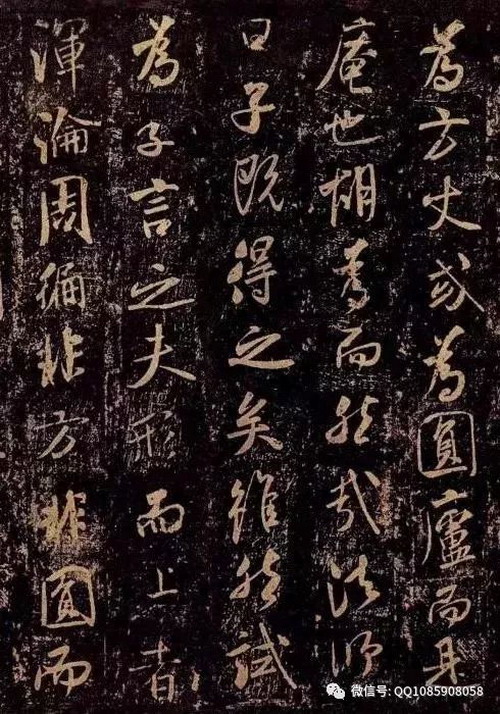 為方丈或為圓廬而
庵也胡為而然哉法師
曰子既得之矣雖然試
為子言之夫形而上者
渾淪周徧非方非圓而
微信号: QQ1085908058